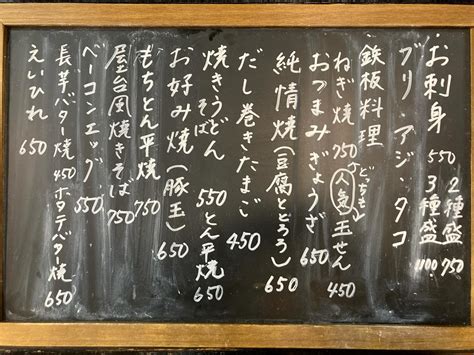 お刺身 550 2種盛 750
3種盛 1100
ブリ アジ タコ
鉄板料理
ねぎ焼 750 どちらも人気 玉せん 450
おつまみぎょうざ 650
純情焼(豆腐とどろろ) 650
だし巻きたまご 450
焼きうどん そば 550 とん平焼 650
お好み焼(豚玉) 650
もちとん平焼 750
屋台風焼きそば 750
ベーコンエッグ 550
長芋バター焼 450 ホタテバター焼 650
えいひれ 650